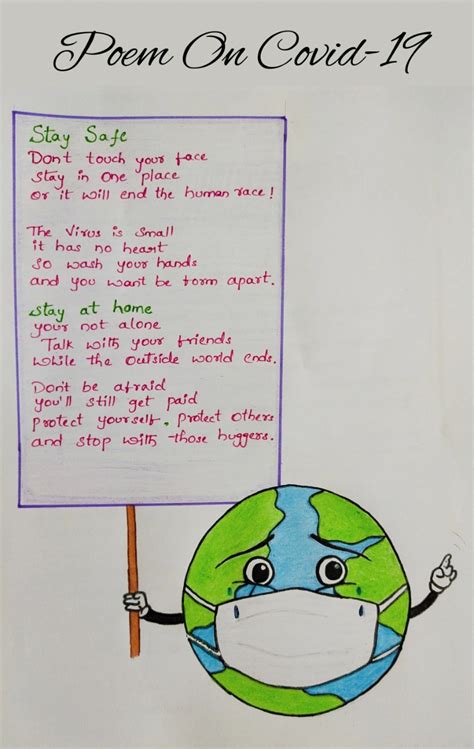 Poem On Covid-19
Stay Safe
Don't touch your face
stay in one place
or it will end the human race!
The Virus is small
it has no heart
so wash your hands
and you want be torm apart.
stay at home
your not alone
Talk with your friends
while the outside world ends.
Don't be afraid
you'll still get paid
protect yourself. protect others
and stop with those huggers.